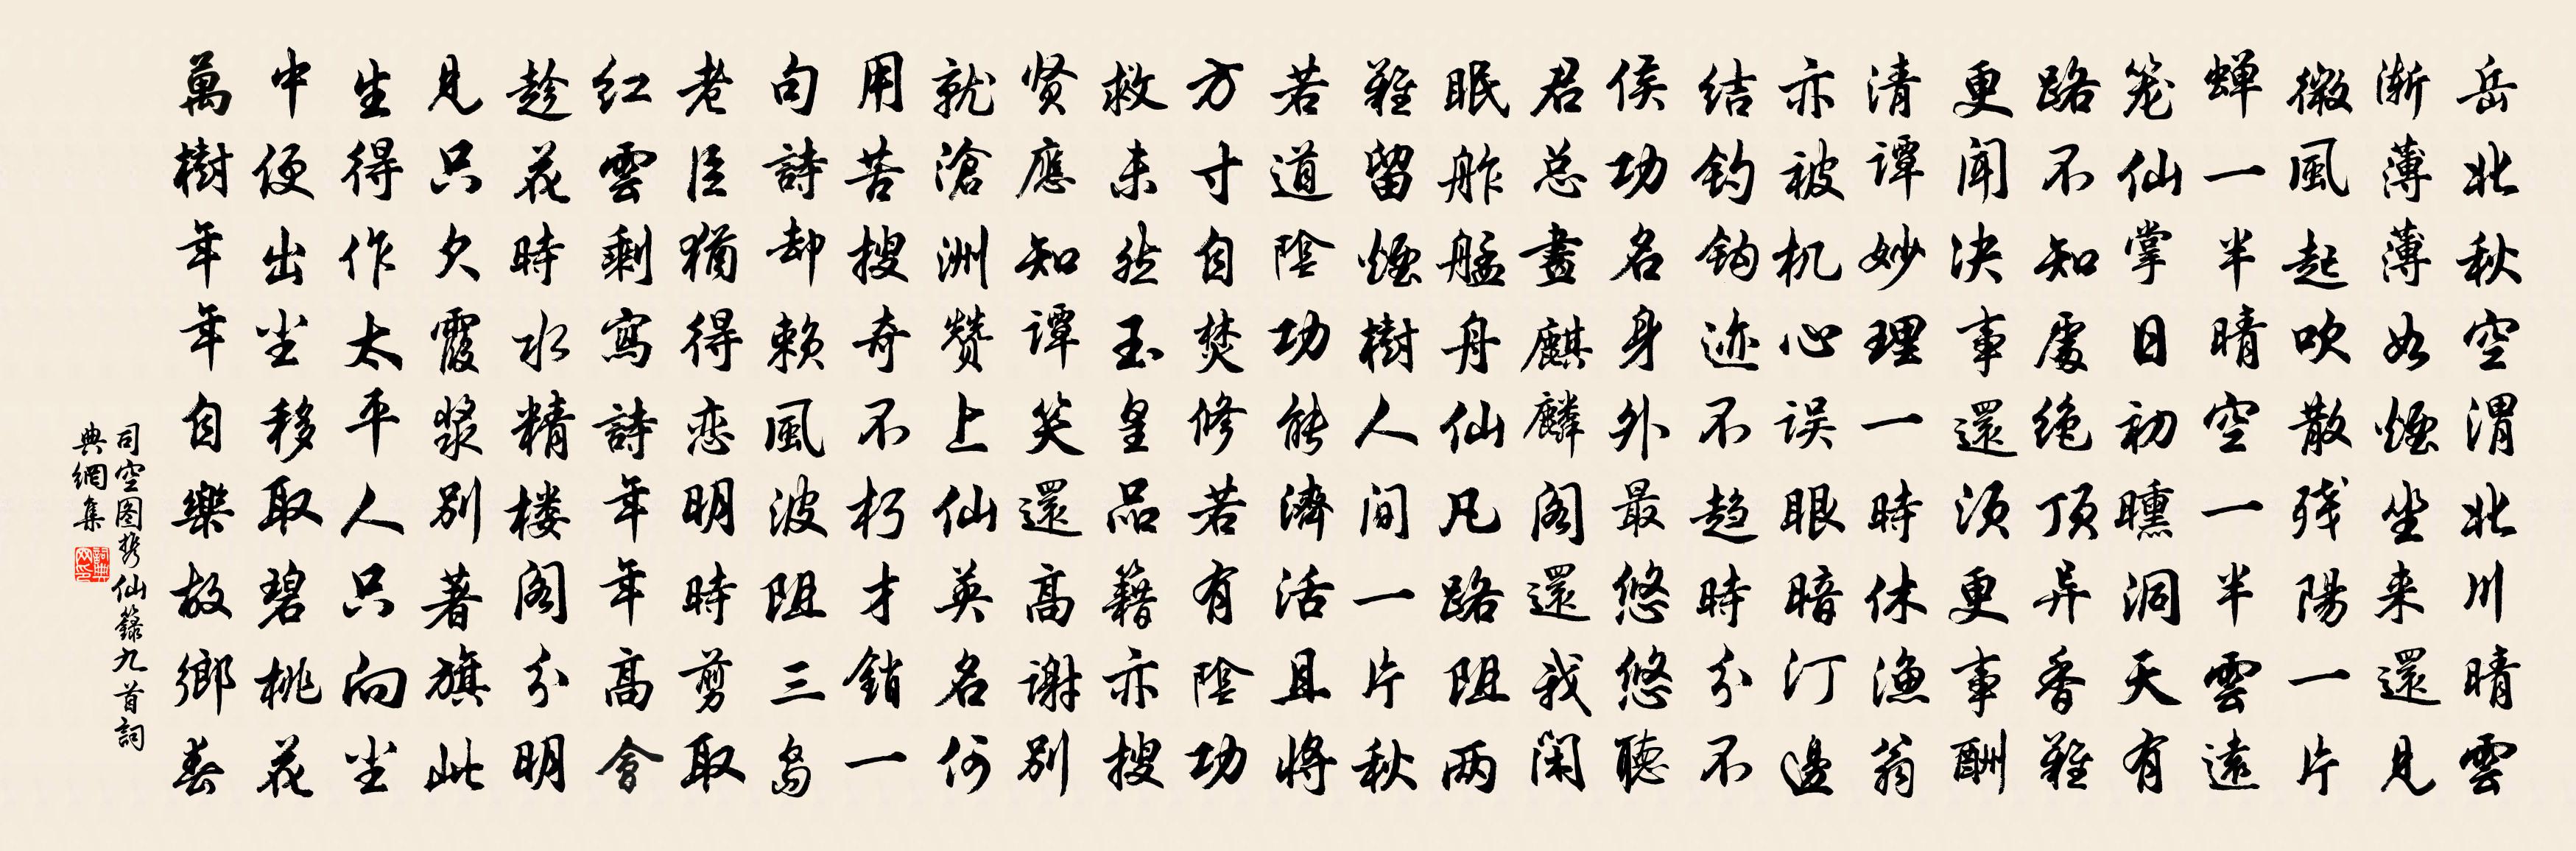 岳北秋空渭北川晴雲
渐薄薄如煙坐来還見
微風起吹散残陽一片
蟬一半晴空一半雲遠
笼仙掌日初曛洞天有
路不知處绝顶异香難
更闻决事還须更事酬
清谭妙理一時休渔翁
亦被机心误眼暗汀邊
结钓钩迹不趋時分不
侯功名身外最悠悠聽
君总畫麒麟阁還我閑
眠舴艋舟仙凡路阻两
難留煙樹人间一片秋
若道陰功能濟活且將
方寸自焚修若有陰功
救未然玉皇品籍亦搜
贤應知谭笑還高谢别
就滄洲赞上仙英名何
用苦搜奇不朽才銷一
句詩却赖風波阻三岛
老臣猶得恋明時剪取
红雲剩寫詩年年高會
趁花時水精楼阁分明
見只欠霞漿别著旗此
生得作太平人只向尘
中便出尘移取碧桃花
萬樹年年自樂故鄉春
司空图携仙籙九首詞
典網集
詞典网印